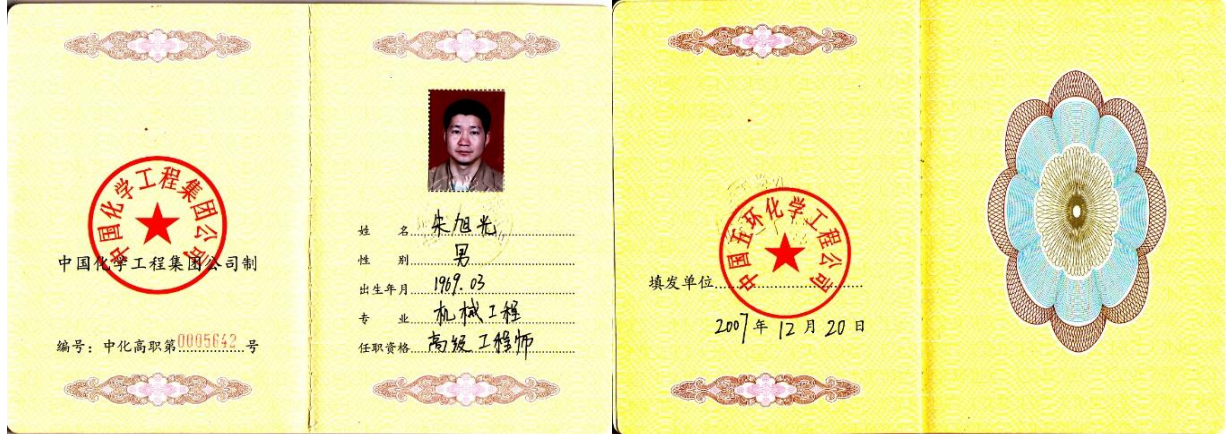 中国化学工程集团公司
中国化学工程集团公司制
编号：中化高职第0005642号
姓 名 朱旭光
性 别 男
出生年月 1969.03
专 业 机械工程
任职资格 高级工程师
中国五环化学工程公司
填发单位
2007年12月20日